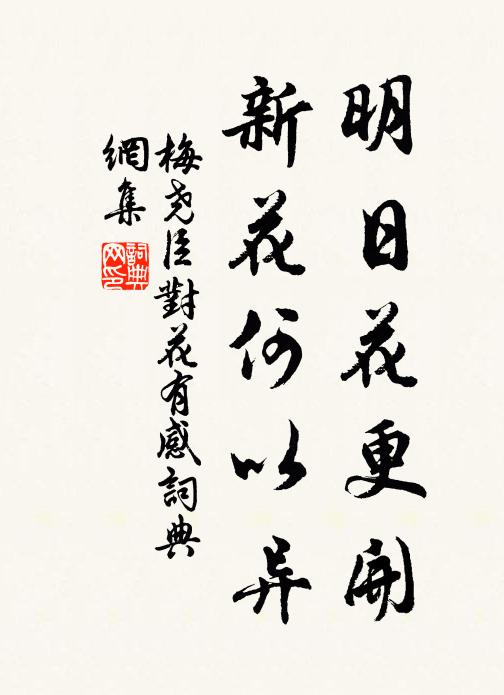 明日花更開
新花何以异
梅尧臣對花有感詞典
網集
詞典
网印